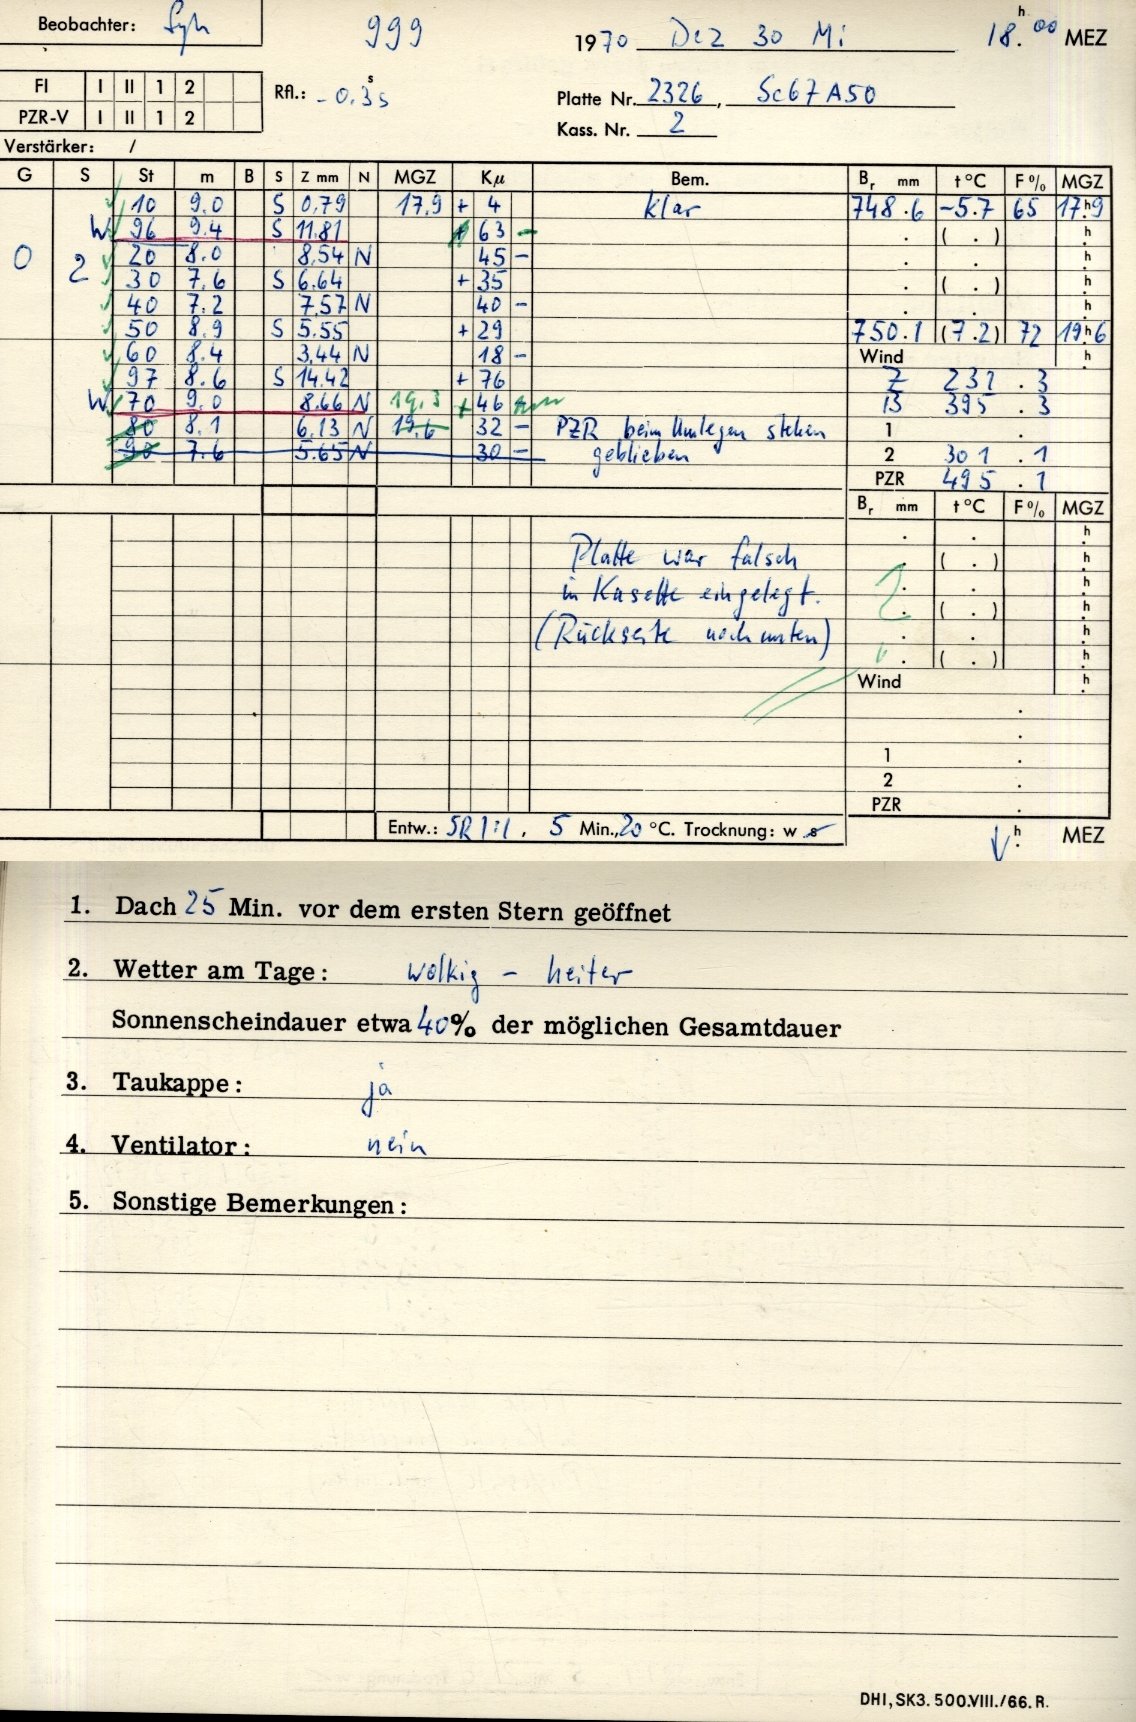 Beobachter: Syh 999 1970 Dez 30 Mi 18.h00 MEZ
FI I II 1 2 Rfl.: -0.s3s Platte Nr. 2326, Sc67A50
PZR-V I II 1 2 Kass. Nr. 2
Verstärker: /
G S St m B S Z mm N MGZ Kμ Bem. Br mm t °C F % MGZ
10 9.0 S 0.79 17.9 + 4 klar 748.6 -5.7 65 17.h9
W 96 9.4 S 11.81 + 63 - . ( . ) .h
0 2 20 8.0 8.54 N 45 - . . .h
30 7.6 S 6.64 + 35 . ( . ) .h
40 7.2 7.57 N 40 - . . .h
50 8.9 S 5.55 + 29 750.1 (7.2) 72 19.h6
60 8.4 3.44 N 18 - Wind .h
97 8.6 S 14.42 + 76 Z 232 . 3
W 70 9.0 8.66 N 19.3 + 46 B 395 . 3
80 8.1 6.13 N 19.6 32 - PZR beim Umlegen stehen 1 .
90 7.6 5.65 N 30 - geblieben 2 301 . 1
PZR 495 . 1
Br mm t °C F % MGZ
. . .h
Platte war falsch . ( . ) .h
in Kasette eingelegt. . . .h
. ( . ) .h
(Rückseite nach unten) . . .h
. ( . ) .h
Wind .h
.
.
1 .
2 .
PZR .
Entw.: SR 1:1, 5 Min., 20 °C. Trocknung: w s .h MEZ
1. Dach 25 Min. vor dem ersten Stern geöffnet
2. Wetter am Tage: wolkig - heiter
Sonnenscheindauer etwa 40% der möglichen Gesamtdauer
3. Taukappe: ja
4. Ventilator: nein
5. Sonstige Bemerkungen:
DHI, SK3. 500.VIII./66. R.